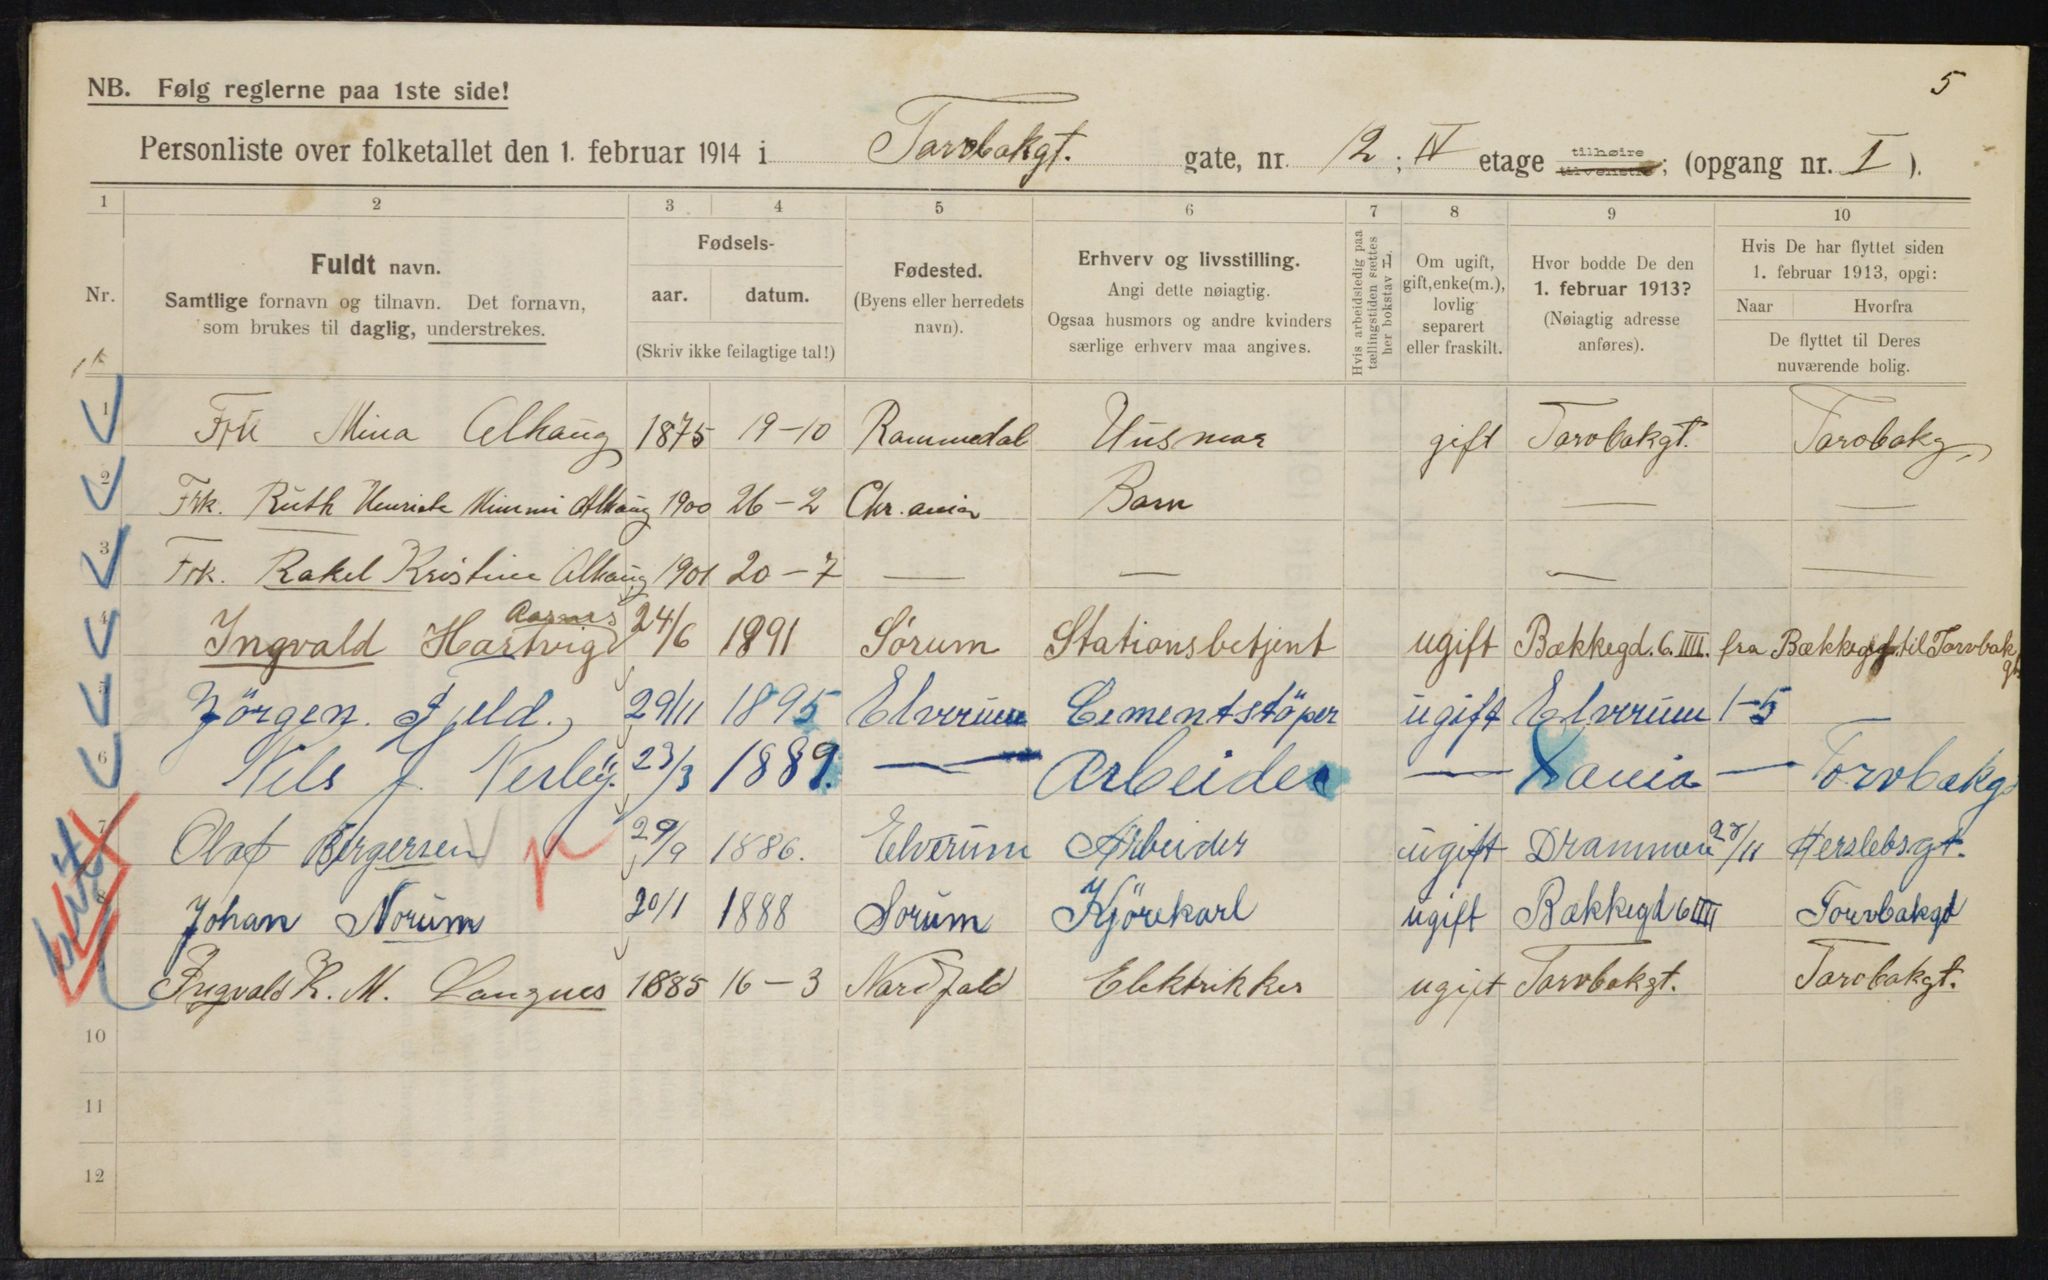 5
NB. Følg reglerne paa 1ste side!
Personliste over folketallet den 1. februar 1914 i Torvbakgt. gate, nr. 12; IV etage tilhøire tilvenstre; (opgang nr. I).
1 2 3 4 5 6 7 8 9 10
Nr.
Fuldt navn.
Samtlige fornavn og tilnavn. Det fornavn,
som brukes til daglig, understrekes.
Fødsels-
aar. datum.
(Skriv ikke feilagtige tal!)
Fødested.
(Byens eller herredets
navn).
Erhverv og livsstilling.
Angi dette nøiagtig.
Ogsaa husmors og andre kvinders
særlige erhverv maa angives.
Hvis arbeidsledig paa
tællingstiden sættes
her bokstav L.
Om ugift,
gift, enke(m.),
lovlig
separert
eller fraskilt.
Hvor bodde De den
1. februar 1913?
(Nøiagtig adresse
anføres).
Hvis De har flyttet siden
1. februar 1913, opgi:
Naar Hvorfra
De flyttet til Deres
nuværende bolig.
1 Frü Mina Alhaug 1875 19-10 Rammedal Husmor gift Torvbakgt. Torvbakg.
2 Frk. Ruth Henriete Mimmi Alhaug 1900 26-2 Chr.ania Barn — —
3 Frk. Rakel Kristine Alhaug 1901 20-7 — — — —
4 Ingvald Hartvig Aarnes 24/6 1891 Sörum Stationsbetjent ugift Bækkegd. 6. IIII. fra Bækkegd til Torvbakgt
5 Jörgen. Fjeld., 29/11 1895 Elverum Cementstöper ugift Elverum 1-5 —
6 Nils J. Nerby. 23/3 1889. — Arbeider — Xania — Torvbakg
7 Olaf Birgersen 29/9 1886. Elverum Arbeider ugift Drammen 27/11 Herslebsgt.
8 Johan Norum 20/1 1888 Sorum Kjörekarl ugift Bækkegd 6 IIII Torvbakgt
9 Ingvald K. M. Langnes 1885 16-3 Nordfold Elektrikker ugift Torvbakgt. Torvbakgt.
10
11
12